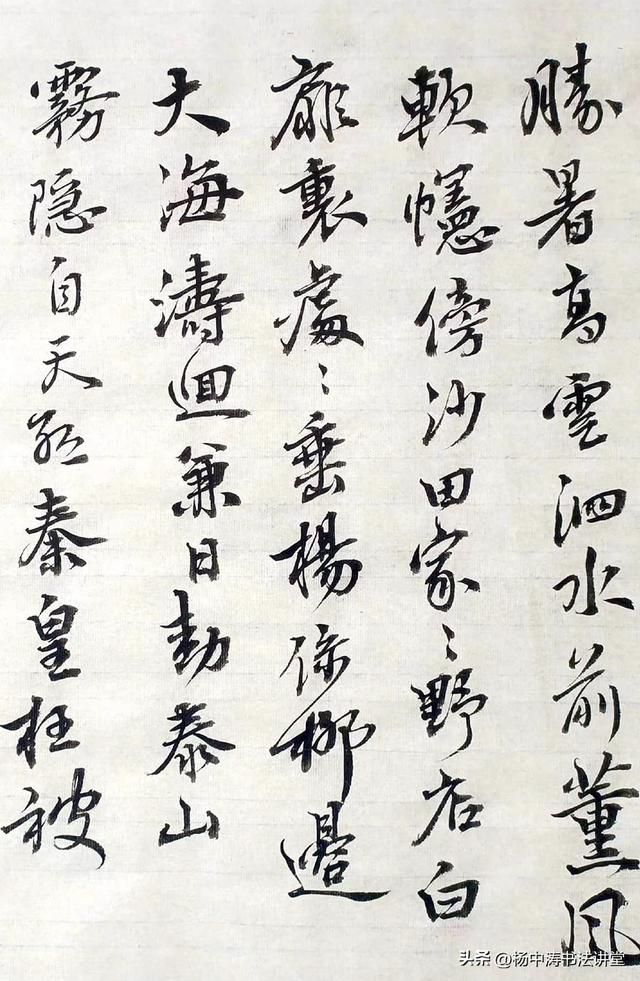 勝暑高雲泗水前薰風
軟幰傍沙田家〻野店白
裏處〻垂楊係柳邊
大海濤迴兼日動泰山
霧隱自天秦皇枉被
头条 @杨中涛书法讲堂